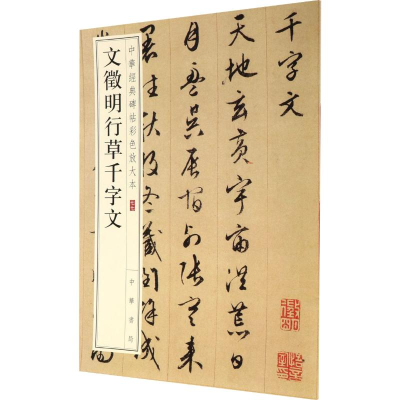 中華經典碑帖彩色放大本
文徵明行草千字文
中華書局
千字文
天地玄黃宇宙洪荒日
月盈昃辰宿列張寒来
暑往秋收冬藏閏餘成